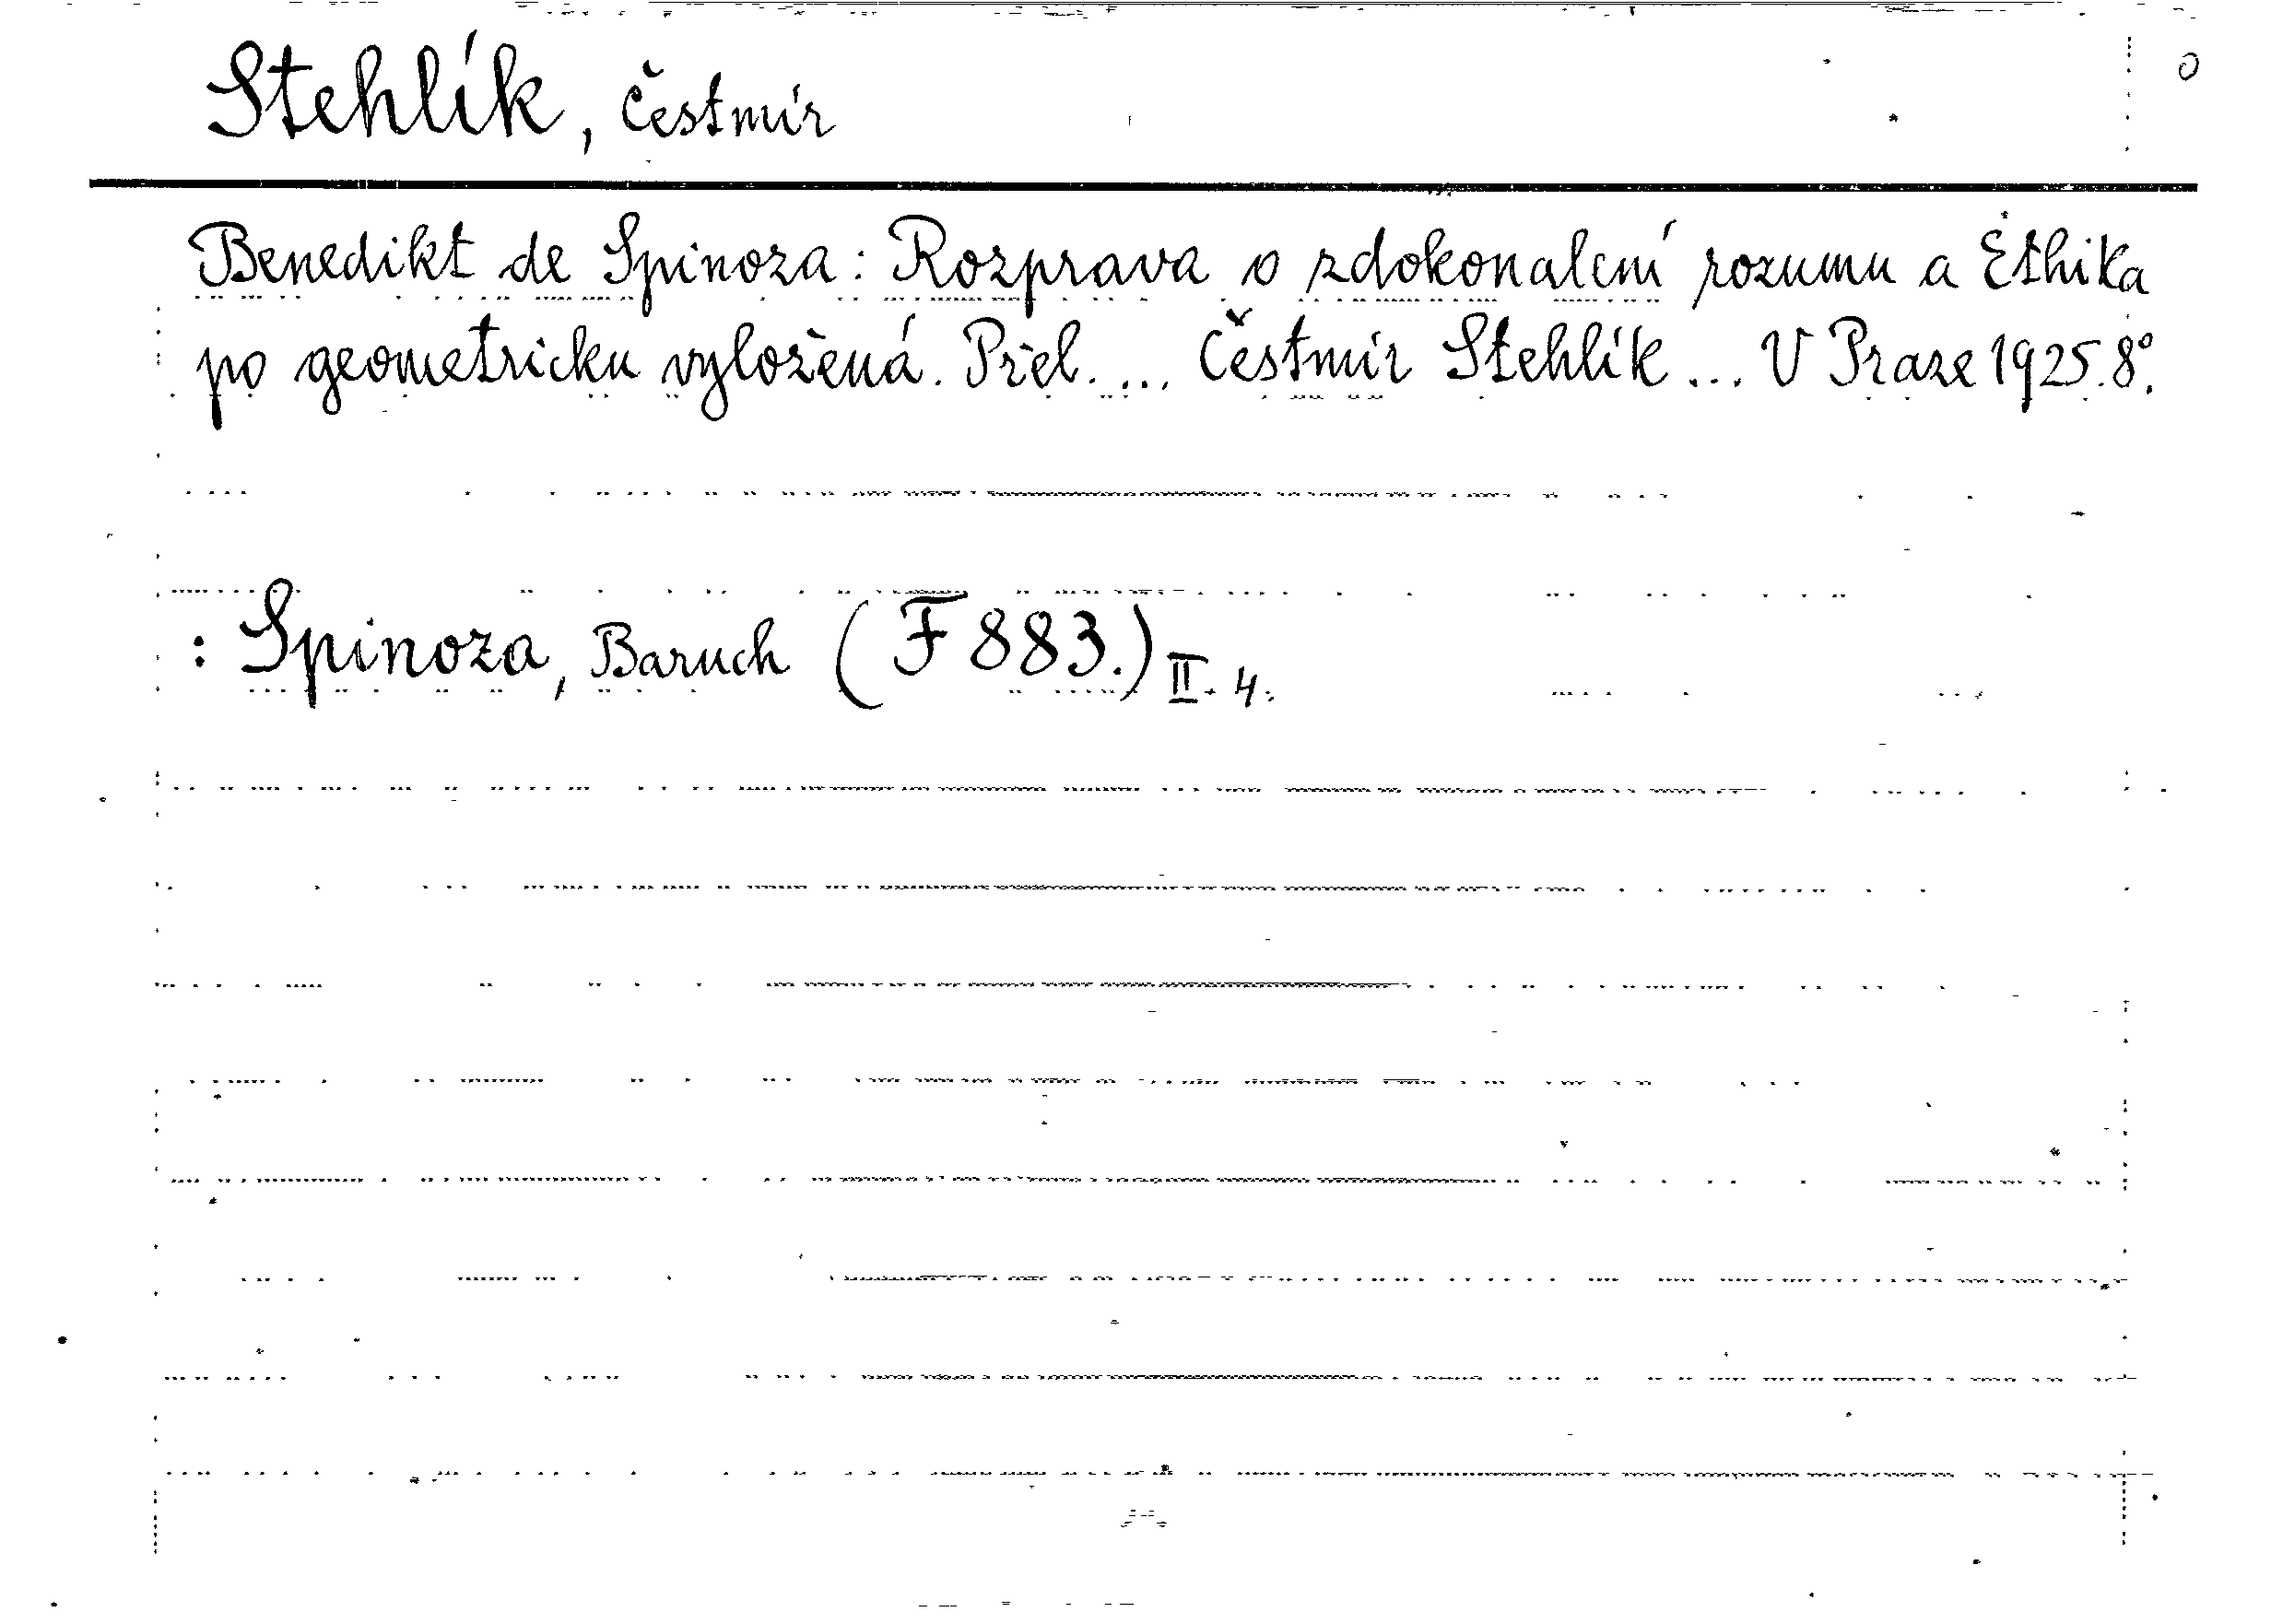 Stehlík, Čestmír
Benedikt de Spinoza: Rozprava o zdokonalení rozumu a Ethika
po geometricku vyložená. Přel. ... Čestmír Stehlík ... V Praze 1925. 8°.
: Spinoza, Baruch (F 883.) II. 4.